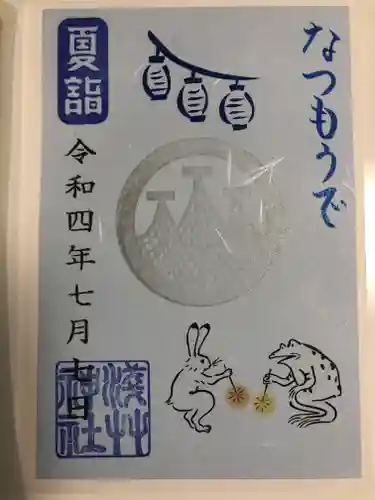 なつもうで
夏詣
令和四年七月七日
浅草
神社